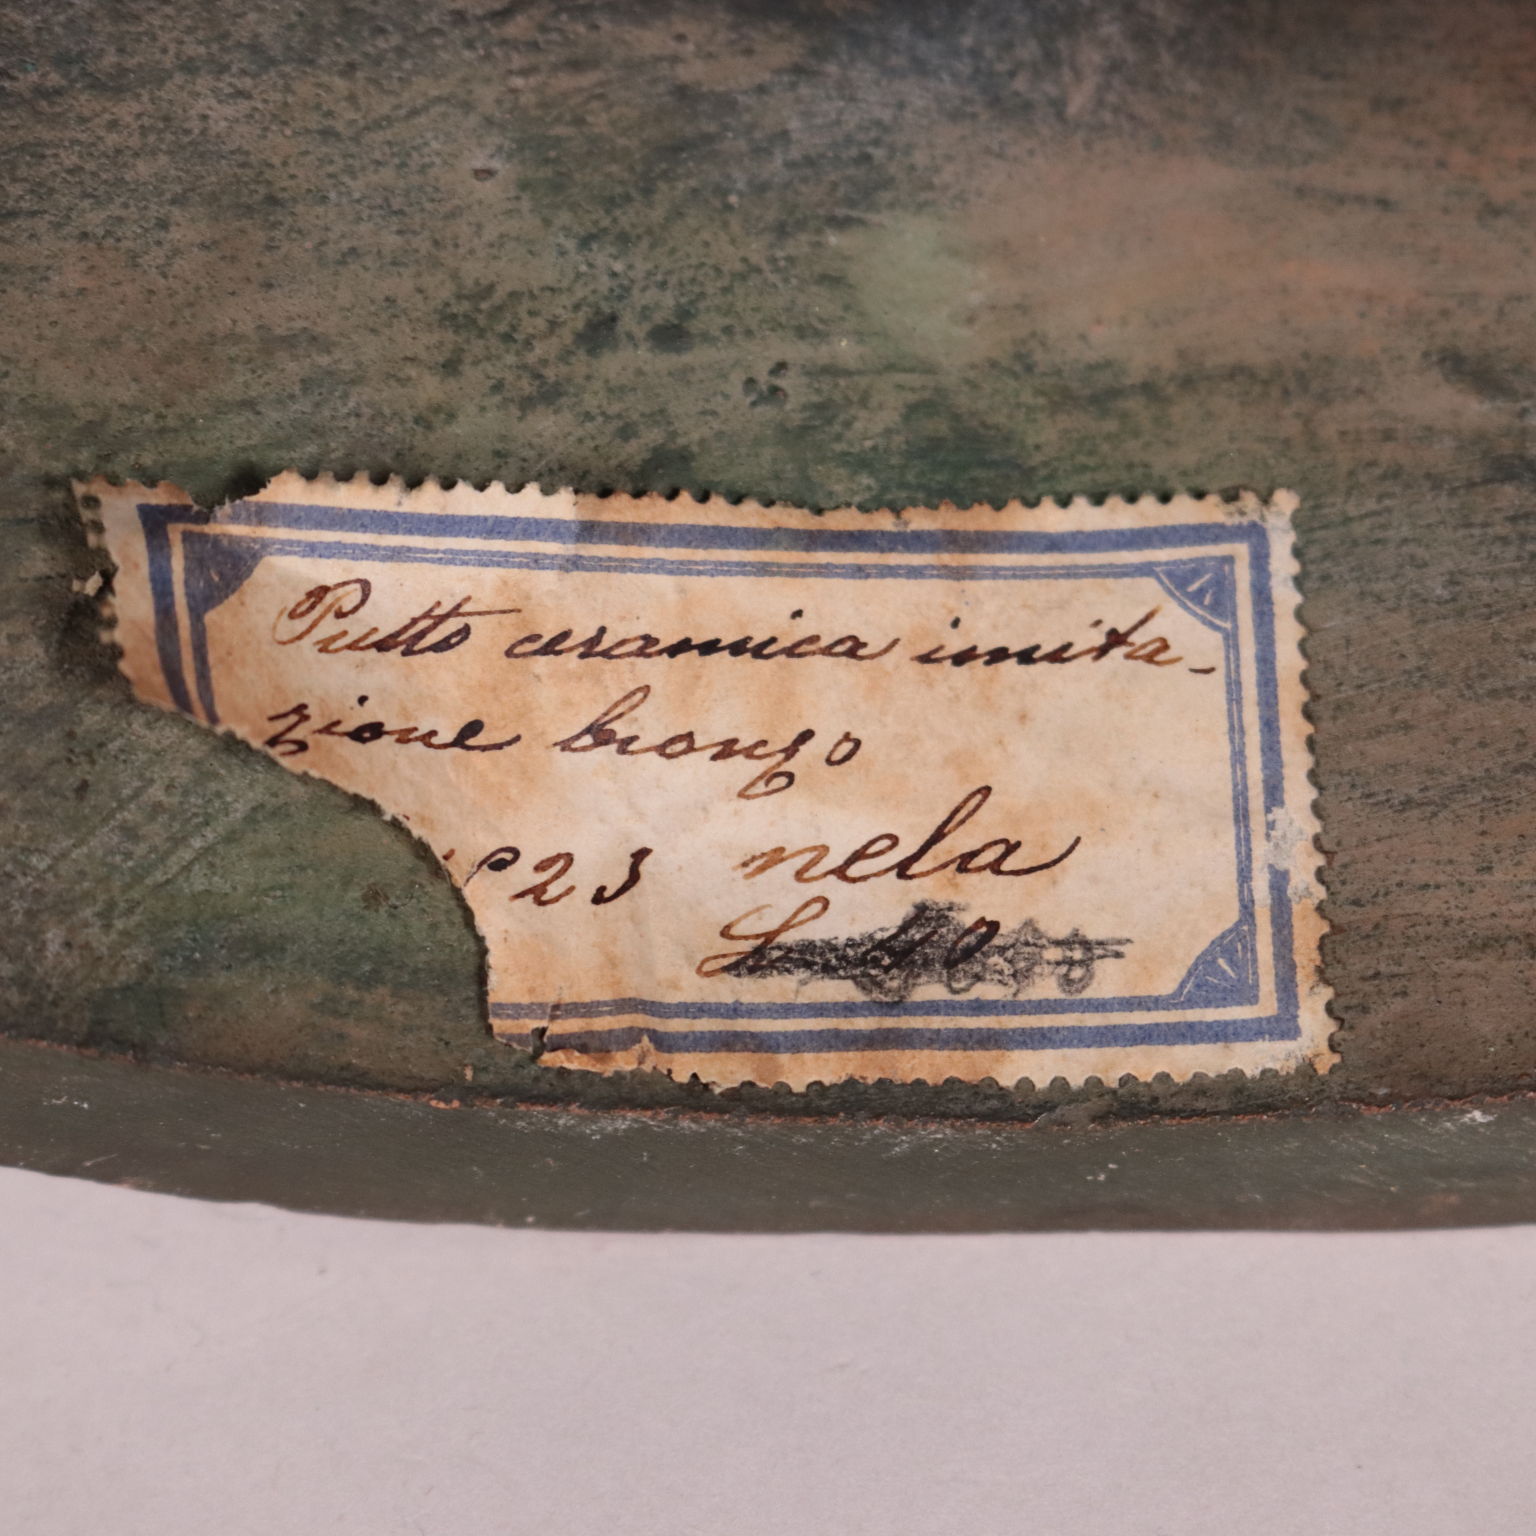 Putto ceramica imita-
zione bronzo
23 nela
L. 40